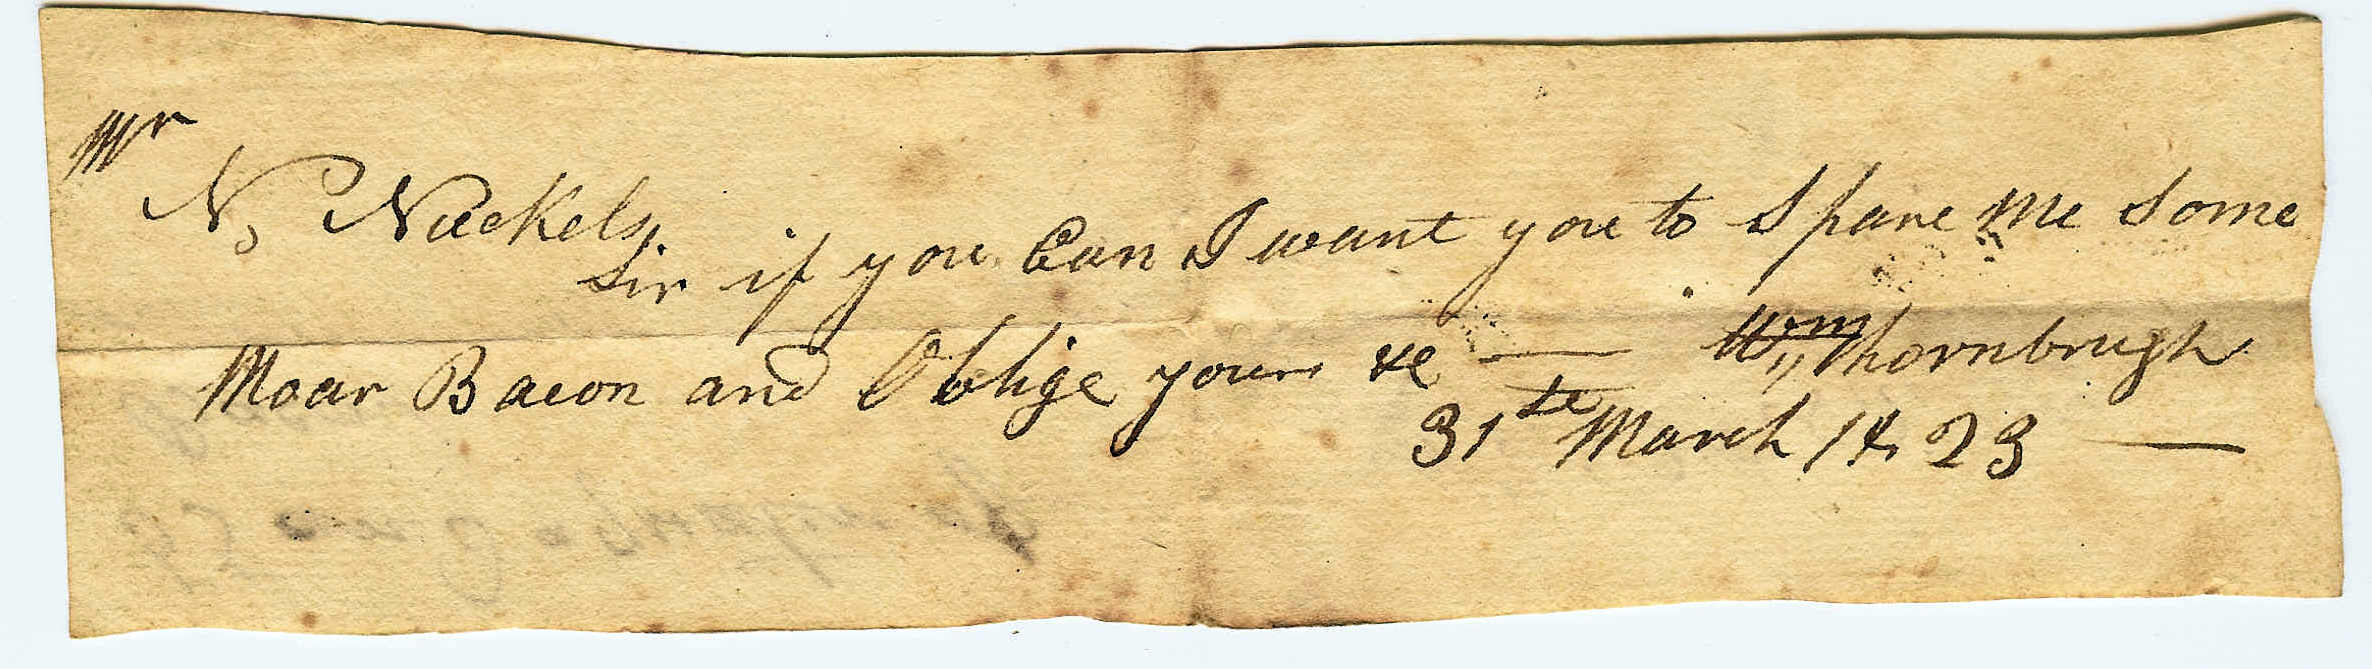 Mr
N, Nuckels,
Sir if you Can I want you to Spare me Some
Moar Bacon and Oblige yours &c — Wm,, Thornbrugh
31st March 1823 —